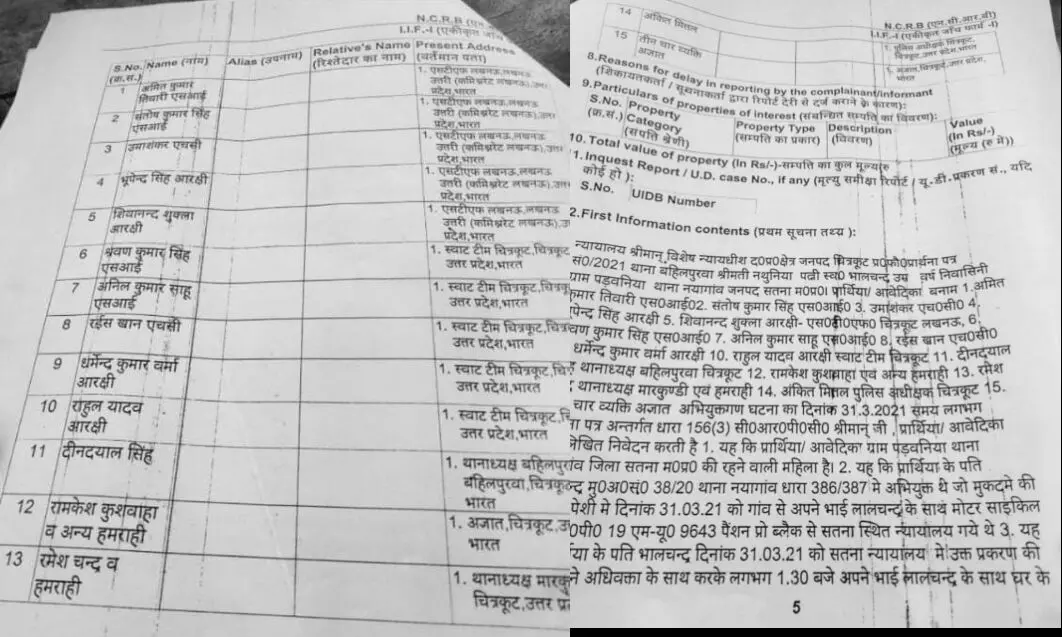 N.C.R.B (एन.
I.I.F.-I (एकीकृत जाँच
S.No. Name (नाम) Alias (उपनाम) Relative's Name Present Address
(क्र.सं.) (रिश्तेदार का नाम) (वर्तमान पता)
1 अमित कुमार तिवारी एसआई 1. एसटीएफ लखनऊ,लखनऊ उत्तरी (कमिश्नरेट लखनऊ),उत्तर प्रदेश,भारत
2 संतोष कुमार सिंह एसआई 1. एसटीएफ लखनऊ,लखनऊ उत्तरी (कमिश्नरेट लखनऊ),उत्तर प्रदेश,भारत
3 उमाशंकर एचसी 1. एसटीएफ लखनऊ,लखनऊ उत्तरी (कमिश्नरेट लखनऊ),उत्तर प्रदेश,भारत
4 भूपेन्द सिंह आरक्षी 1. एसटीएफ लखनऊ,लखनऊ उत्तरी (कमिश्नरेट लखनऊ),उत्तर प्रदेश,भारत
5 शिवानन्द शुक्ला आरक्षी 1. एसटीएफ लखनऊ,लखनऊ उत्तरी (कमिश्नरेट लखनऊ),उ प्रदेश,भारत
6 श्रवण कुमार सिंह एसआई 1. स्वाट टीम चित्रकूट,चित्रकूट उत्तर प्रदेश,भारत
7 अनिल कुमार साहू एसआई 1. स्वाट टीम चित्रकूट,चित्रकू उत्तर प्रदेश,भारत
8 रईस खान एचसी 1. स्वाट टीम चित्रकूट,चित्र उत्तर प्रदेश,भारत
9 धर्मेन्द कुमार वर्मा आरक्षी 1. स्वाट टीम चित्रकूट,चित्र उत्तर प्रदेश,भारत
10 राहुल यादव आरक्षी 1. स्वाट टीम चित्रकूट,चि उत्तर प्रदेश,भारत
11 दीनदयाल सिंह 1. थानाध्यक्ष बहिलपुर बहिलपुरवा,चित्रकूट भारत
12 रामकेश कुशवाहा व अन्य हमराही 1. अज्ञात,चित्रकूट,उ भारत
13 रमेश चन्द व हमराही 1. थानाध्यक्ष मारकु चित्रकूट,उत्तर प्र
N.C.R.B (एन.सी.आर.बी)
I.I.F.-I (एकीकृत जाँच फार्म -I)
14 अंकित मित्तल 1. पुलिस अधीक्षक चित्रकूट, चित्रकूट,उत्तर प्रदेश,भारत
15 तीन चार व्यक्ति अज्ञात 1. अज्ञात,चित्रकूट,उत्तर प्रदेश, भारत
8.Reasons for delay in reporting by the complainant/informant
(शिकायतकर्ता / सूचनाकर्ता द्वारा रिपोर्ट देरी से दर्ज कराने के कारण):
9.Particulars of properties of interest (संबन्धित सम्पत्ति का विवरण):
S.No. Property Property Type Description Value
(क्र.सं.) Category (सम्पत्ति का प्रकार) (विवरण) (In Rs/-)
(संपत्ति श्रेणी) (मूल्य (रु में))
10.Total value of property (In Rs/-)-सम्पत्ति का कुल मूल्य(रु
1.Inquest Report / U.D. case No., if any (मृत्यु समीक्षा रिपोर्ट / यू.डी.प्रकरण सं., यदि
कोई हो ):
S.No. UIDB Number
2.First Information contents (प्रथम सूचना तथ्य ):
न्यायालय श्रीमान् विशेष न्यायधीश द०प्र०क्षेत्र जनपद चित्रकूट प्र०फौ०प्रार्थना पत्र
सं0/2021 थाना बहिलपुरवा श्रीमती नथुनिया पत्नी स्व0 भालचन्द उम्र वर्ष निवासिनी
ग्राम पड़वनिया थाना नयागांव जनपद सतना म0प्र0। प्रार्थिया/ आवेदिका बनाम 1.अमित
कुमार तिवारी एस0आई02. संतोष कुमार सिंह एस0आई0 3. उमाशंकर एच0सी0 4.
पेन्द सिंह आरक्षी 5. शिवानन्द शुक्ला आरक्षी- एस0टी0एफ0 चित्रकूट लखनऊ, 6.
वण कुमार सिंह एस0आई0 7. अनिल कुमार साहू एस0आई0 8. रईस खान एच0सी0
धर्मेन्द कुमार वर्मा आरक्षी 10. राहुल यादव आरक्षी स्वाट टीम चित्रकूट 11. दीनदयाल
थानाध्यक्ष बहिलपुरवा चित्रकूट 12. रामकेश कुशवाहा एवं अन्य हमराही 13. रमेश
थानाध्यक्ष मारकुण्डी एवं हमराही 14. अंकित मित्तल पुलिस अधीक्षक चित्रकूट 15.
चार व्यक्ति अज्ञात अभियुक्तगण घटना का दिनांक 31.3.2021 समय लगभग
ना पत्र अन्तर्गत धारा 156(3) सी0आर0पी0सी0 श्रीमान् जी , प्रार्थिया/ आवेदिका
लिखित निवेदन करती है 1. यह कि प्रार्थिया/ आवेदिका ग्राम पड़वनिया थाना
गांव जिला सतना म0प्र0 की रहने वाली महिला है। 2. यह कि प्रार्थिया के पति
न्द मु0अ0सं0 38/20 थाना नयागांव धारा 386/387 मे अभियुक्त थे जो मुकदमे की
पेशी मे दिनांक 31.03.21 को गांव से अपने भाई लालचन्द के साथ मोटर साइकिल
0पी0 19 एम-यू0 9643 पैंशन प्रो ब्लैक से सतना स्थित न्यायालय गये थे 3. यह
या के पति भालचन्द दिनांक 31.03.21 को सतना न्यायालय मे उक्त प्रकरण की
ने अधिवक्ता के साथ करके लगभग 1.30 बजे अपने भाई लालचन्द के साथ घर के
5